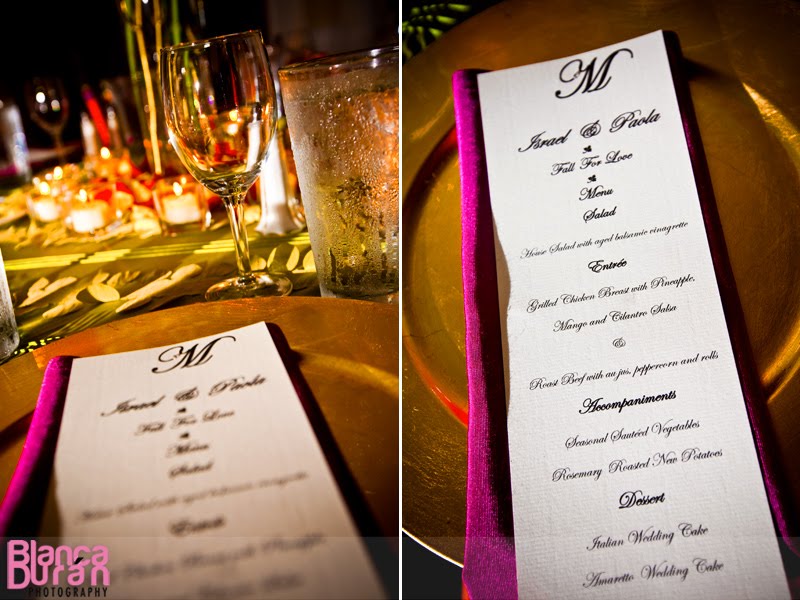 M
Israel & Paola
Fall For Love
Menu
Salad
Entrée
Blanca
Durán
PHOTOGRAPHY
M
Israel & Paola
Fall For Love
Menu
Salad
House Salad with aged balsamic vinagrette
Entrée
Grilled Chicken Breast with Pineapple,
Mango and Cilantro Salsa
&
Roast Beef with au jus, peppercorn and rolls
Accompaniments
Seasonal Sautéed Vegetables
Rosemary Roasted New Potatoes
Dessert
Italian Wedding Cake
Amaretto Wedding Cake